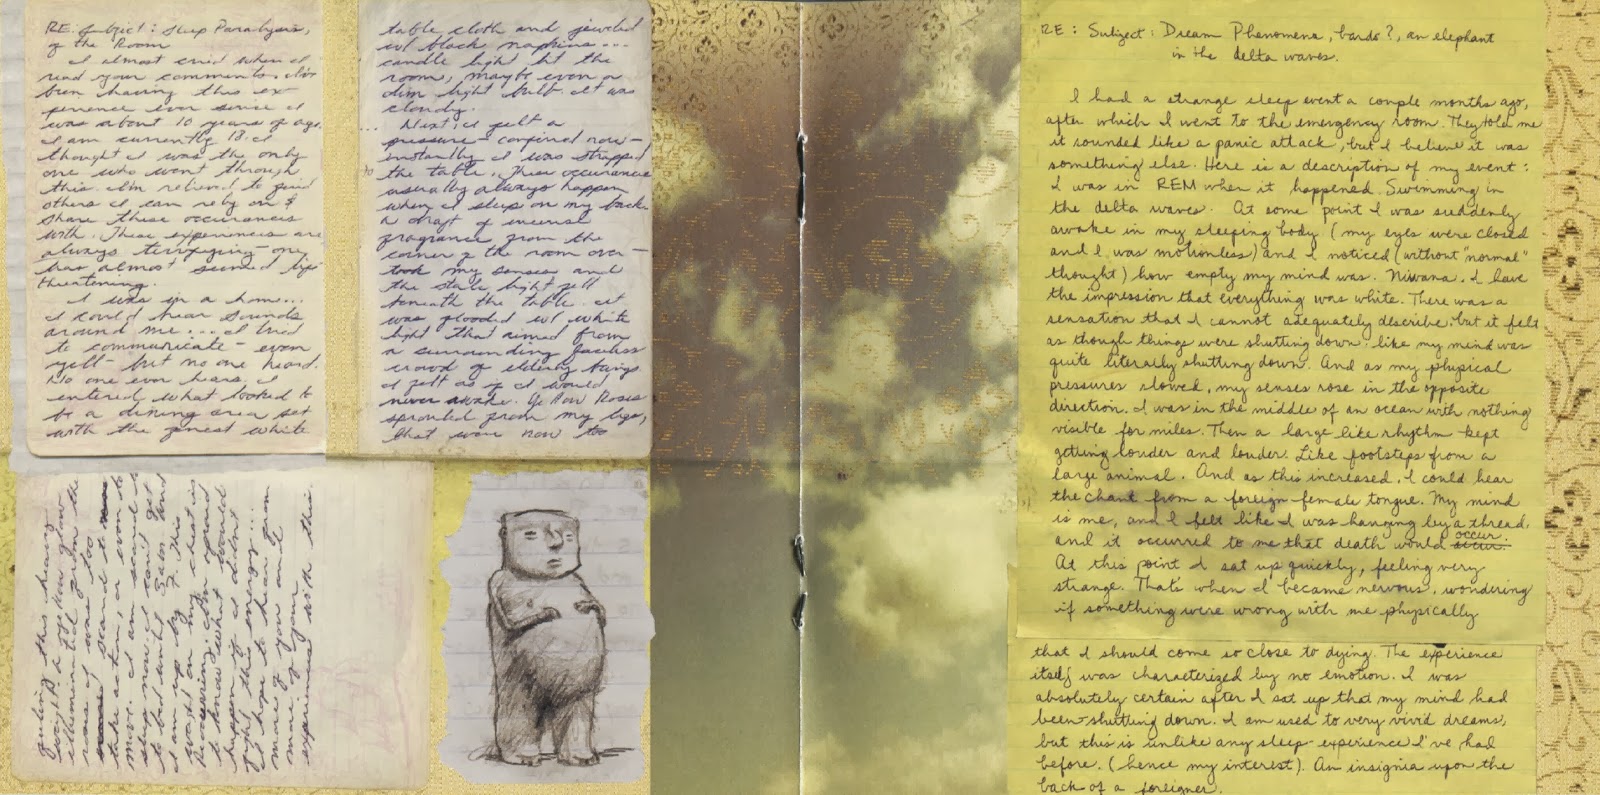 RE. Subject: Sleep Paralysis,
of the Room
I almost cried when I
read your comments. I've
been having this ex-
perience ever since I
was about 10 years of age.
I am currently 18. I
thought I was the only
one who went through
this. I'm relieved to find
others I can rely on &
share these occurances
with. These experiences are
always terrifying - one
has almost seemed life
threatening.
I was in a home...
I could hear sounds
around me... I tried
to communicate - even
yell - but no one heard.
No one ever hears. I
entered what looked to
be a dining area set
with the finest white
table cloth and jeweled
w/ black napkins...
candle light lit the
room, maybe even a
dim light bulb. It was
cloudy.
... Next, I felt a
pressure - confined now -
instantly I was strapped
the table. These occurances
usually always happen
when I sleep on my back.
A draft of incense
fragrance from the
corner of the room over-
took my senses and
the stale light fell
beneath the table. It
was flooded w/ white
light that aimed from
a surrounding faceless
crowd of elderly beings.
I felt as if I would
never awake. Yellow Roses
sprouted from my legs,
that were now too
weight. A yellow glow
illuminated from the
roses. I was too
scared to
take action, or even to
move. I am scared to
sleep now. I can't get
to bed until 5am and
I am up by 7. This
weight on my chest is
I know what would
happen if I didn't
fight this energy...
I hope to hear from
more of you and
more of your
experiences with this.
RE: Subject: Dream Phenomena, bardo?, an elephant
in the delta waves.
I had a strange sleep event a couple months ago,
after which I went to the emergency room. They told me
it sounded like a panic attack, but I believe it was
something else. Here is a description of my event:
I was in REM when it happened. Swimming in
the delta waves. At some point I was suddenly
awake in my sleeping body (my eyes were closed
and I was motionless) and I noticed (without "normal"
thought) how empty my mind was. Nirvana. I have
the impression that everything was white. There was a
sensation that I cannot adequately describe, but it felt
as though things were shutting down. like my mind was
quite literally shutting down. And as my physical
pressures slowed, my senses rose in the opposite
direction. I was in the middle of an ocean with nothing
visible for miles. Then a large like rhythm kept
getting louder and louder. Like footsteps from a
large animal. And as this increased, I could hear
the chant from a foreign female tongue. My mind
is me, and I felt like I was hanging by a thread,
and it occurred to me that death would occur.
At this point I sat up quickly, feeling very
strange. That's when I became nervous, wondering
if something were wrong with me physically
that I should come so close to dying. The experience
itself was characterized by no emotion. I was
absolutely certain after I sat up that my mind had
been shutting down. I am used to very vivid dreams,
but this is unlike any sleep-experience I've had
before. (hence my interest). An insignia upon the
back of a foreigner.